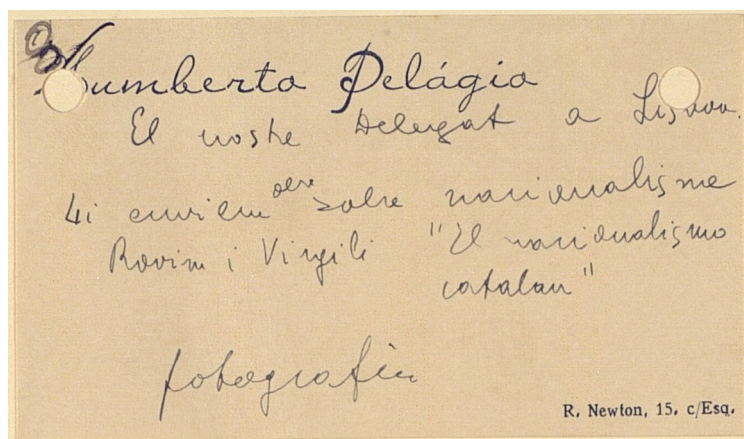 Humberto Pelágio
El nostre Delegat a Lisboa.
Li enviem obra sobre nacionalisme
Rovira i Virgili "El nacionalismo
catalan"
fotografia
R. Newton, 15. c/Esq.